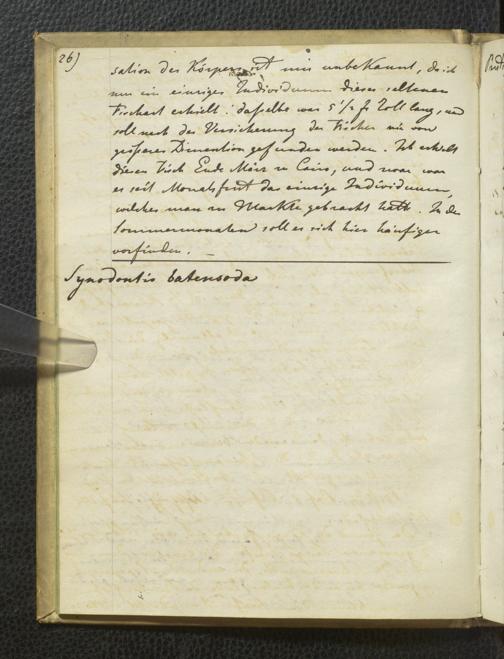 26)
sation des Körpers ist mir unbekannt, da ich
nur ein einziges Individuum dieser seltenen
Fischart erhielt: dasselbe war 5 1/2 Zoll lang, und
soll nach der Versicherung der Fischer nie von
grösserer Dimention gefunden werden. Ich erhielt
diesen Fisch Ende März in Cairo, und zwar war
es seit Monatsfrist das einzige Individuum,
welches man zu Markte gebracht hatte. In den
Sommermonaten soll es sich hier häufiger
vorfinden. —
Synodontis batensoda